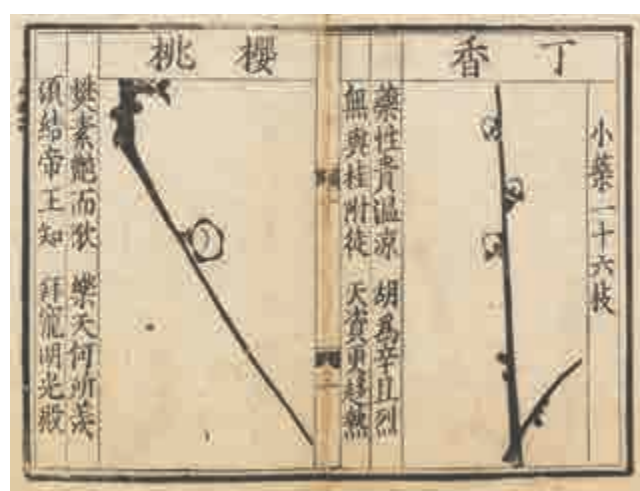 丁香
小蘂一十六枝
藥性貴溫涼 胡為辛且烈
無與桂附徒 天資更趨熱
櫻桃
樊素艶而歌 樂天何所羨
須結帝王知 拜寵明光殿